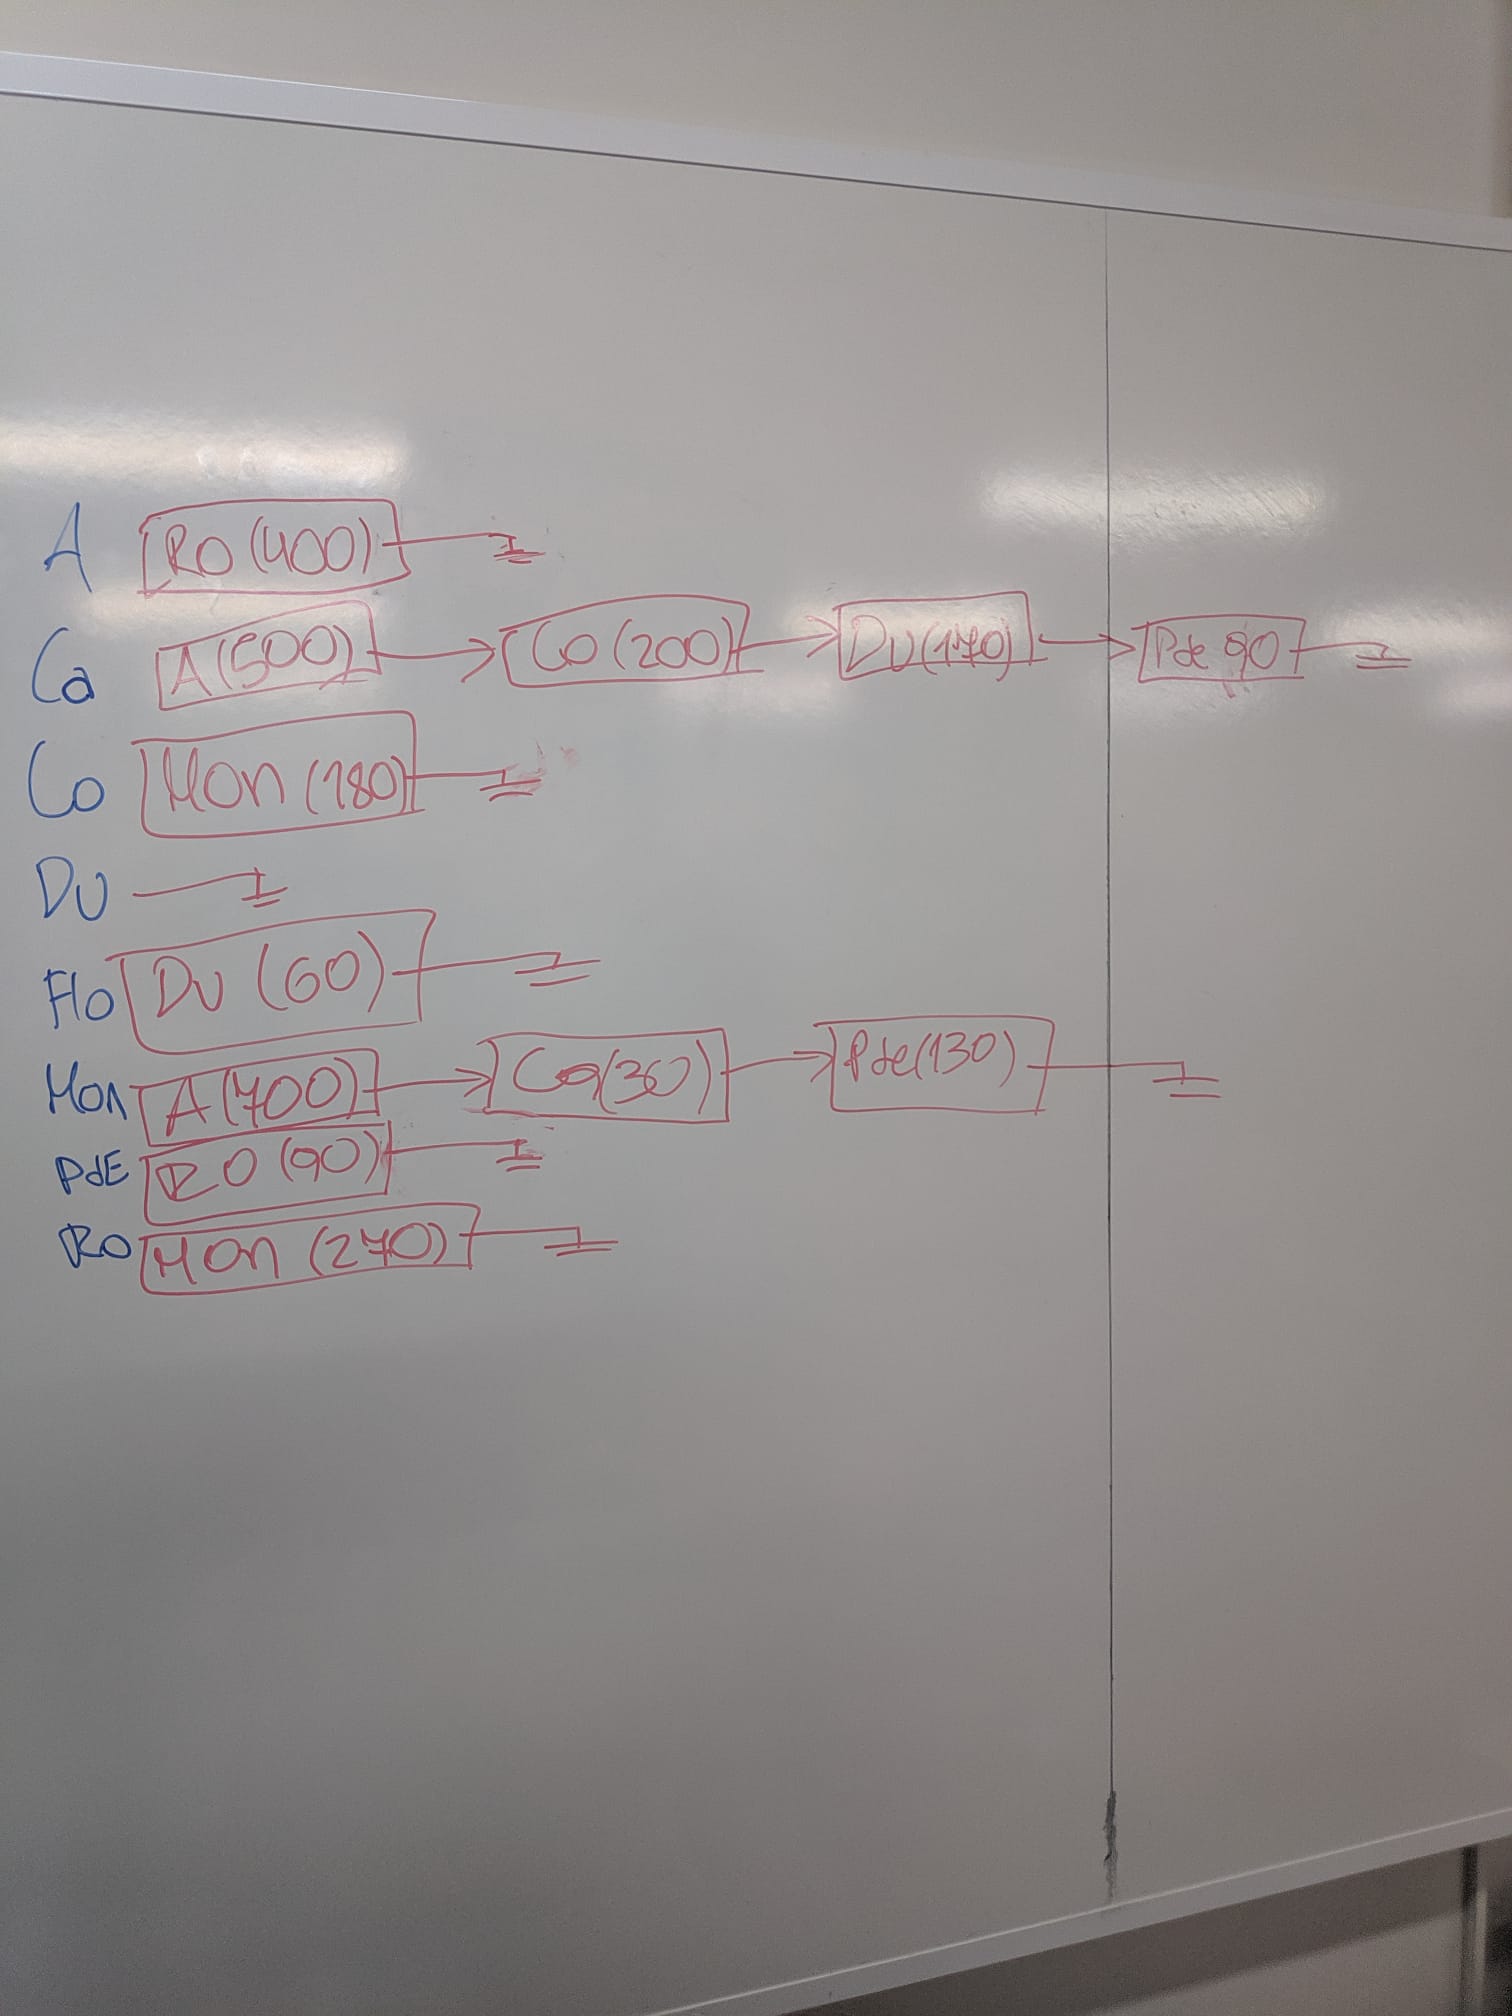 A RO (400)
Ca A (500) Co (200) DU (170) Pde 90
Co Mon (180)
DU
Flo DU (60)
Mon A (700) Ca (30) Pde (130)
PdE RO (90)
RO MOn (270)